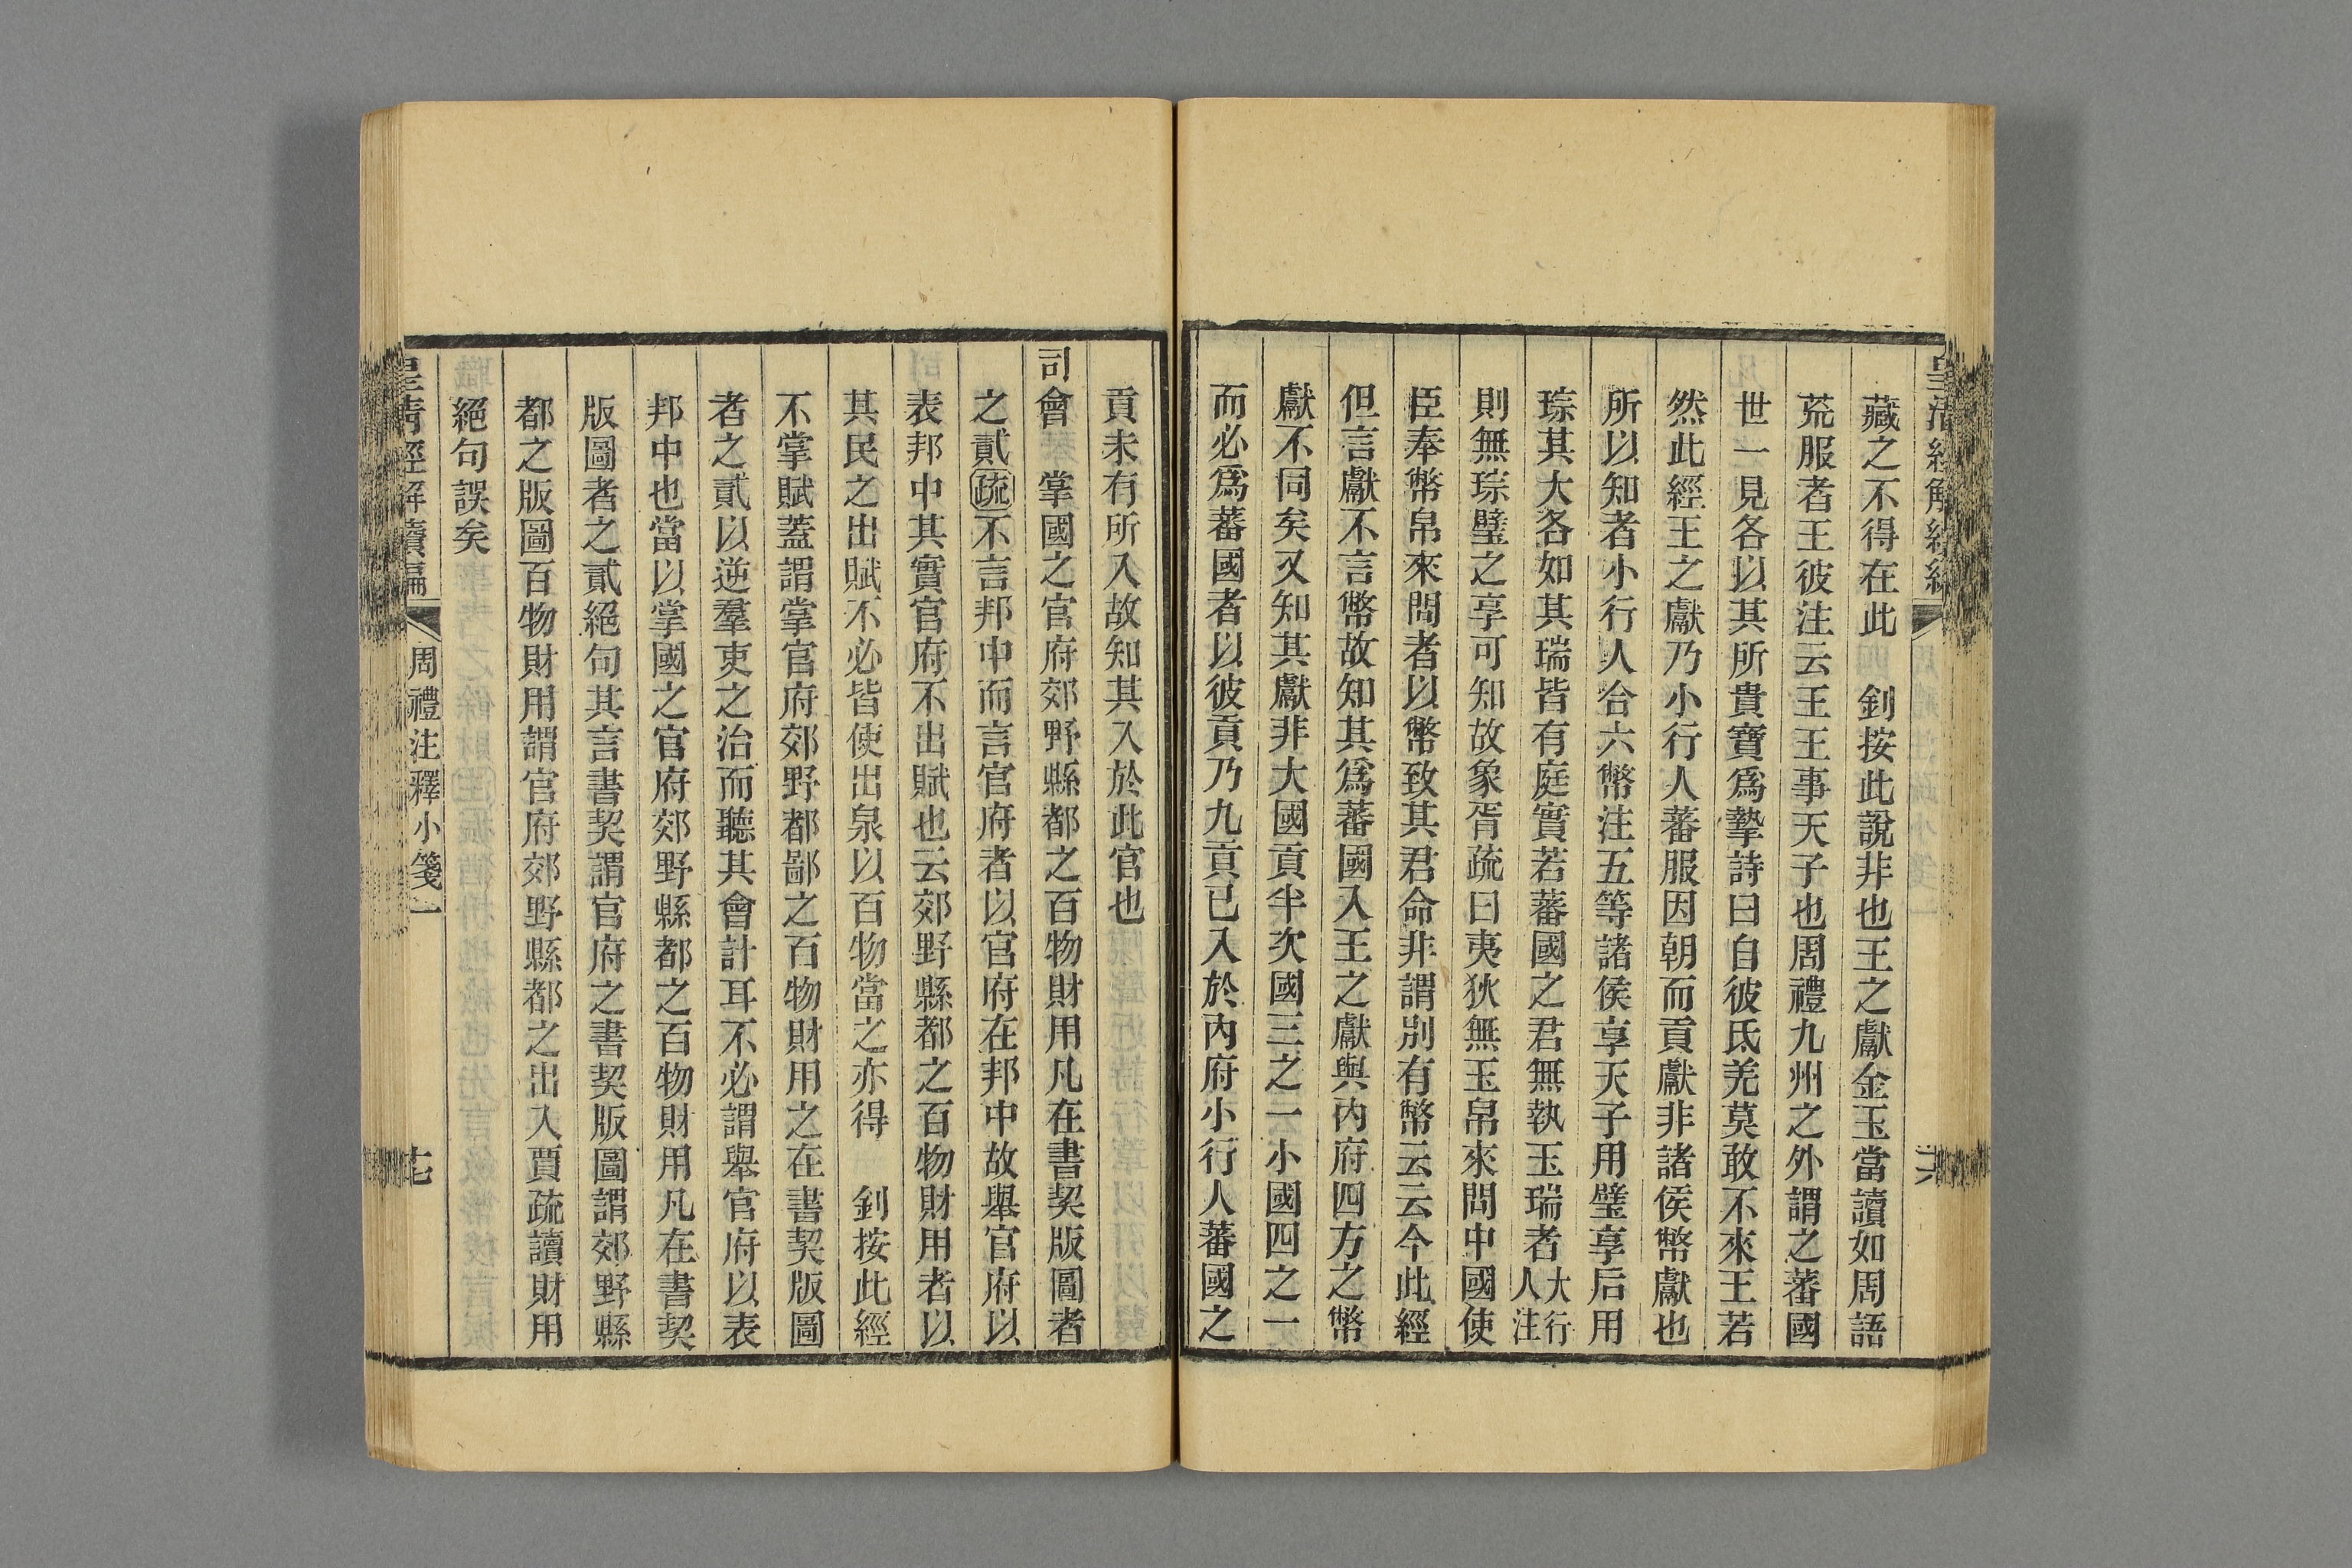 藏之不得在此　釗按此說非也王之獻金玉當讀如周語
荒服者王彼注云王王事天子也周禮九州之外謂之蕃國
世一見各以其所貴寶爲摯詩曰自彼氐羌莫敢不來王若
然此經王之獻乃小行人蕃服因朝而貢獻非諸侯幣獻也
所以知者小行人合六幣注五等諸侯享天子用璧享后用
琮其大各如其瑞皆有庭實若蕃國之君無執玉瑞者大行人注
則無琮璧之享可知故象胥疏曰夷狄無玉帛來問中國使
臣奉幣帛來問者以幣致其君命非謂別有幣云云今此經
但言獻不言幣故知其爲蕃國入王之獻與內府四方之幣
獻不同矣又知其獻非大國貢半次國三之一小國四之一
而必爲蕃國者以彼貢乃九貢已入於內府小行人蕃國之
貢未有所入故知其入於此官也
司會　掌國之官府郊野縣都之百物財用凡在書契版圖者
之貳疏不言邦中而言官府者以官府在邦中故舉官府以
表邦中其實官府不出賦也云郊野縣都之百物財用者以
其民之出賦不必皆使出泉以百物當之亦得　釗按此經
不掌賦蓋謂掌官府郊野都鄙之百物財用之在書契版圖
者之貳以逆羣吏之治而聽其會計耳不必謂舉官府以表
邦中也當以掌國之官府郊野縣都之百物財用凡在書契
版圖者之貳絕句其言書契謂官府之書契版圖謂郊野縣
都之版圖百物財用謂官府郊野縣都之出入賈疏讀財用
絕句誤矣
皇清經解續編
周禮注釋小箋一
七